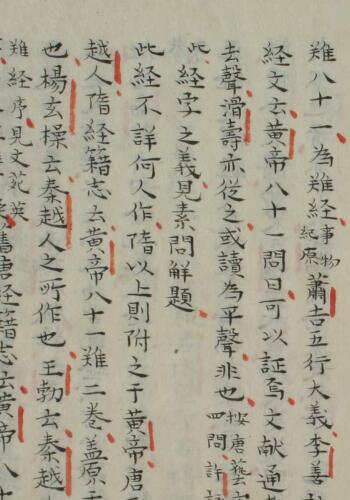 難八十一為難経事物紀原蕭吉五行大義李善
経文云黄帝八十一問曰可以証焉文献通
去聲滑壽亦從之或讀為平聲非也按唐藝四問許
此経字之義見素問解題
此経不詳何人作隋以上則附之于黄帝唐
越人隋経籍志云黄帝八十一難二卷盖原
也楊玄操云秦越人之所作也王勃云秦越
難経序見文苑英
唐経籍志云黄帝八